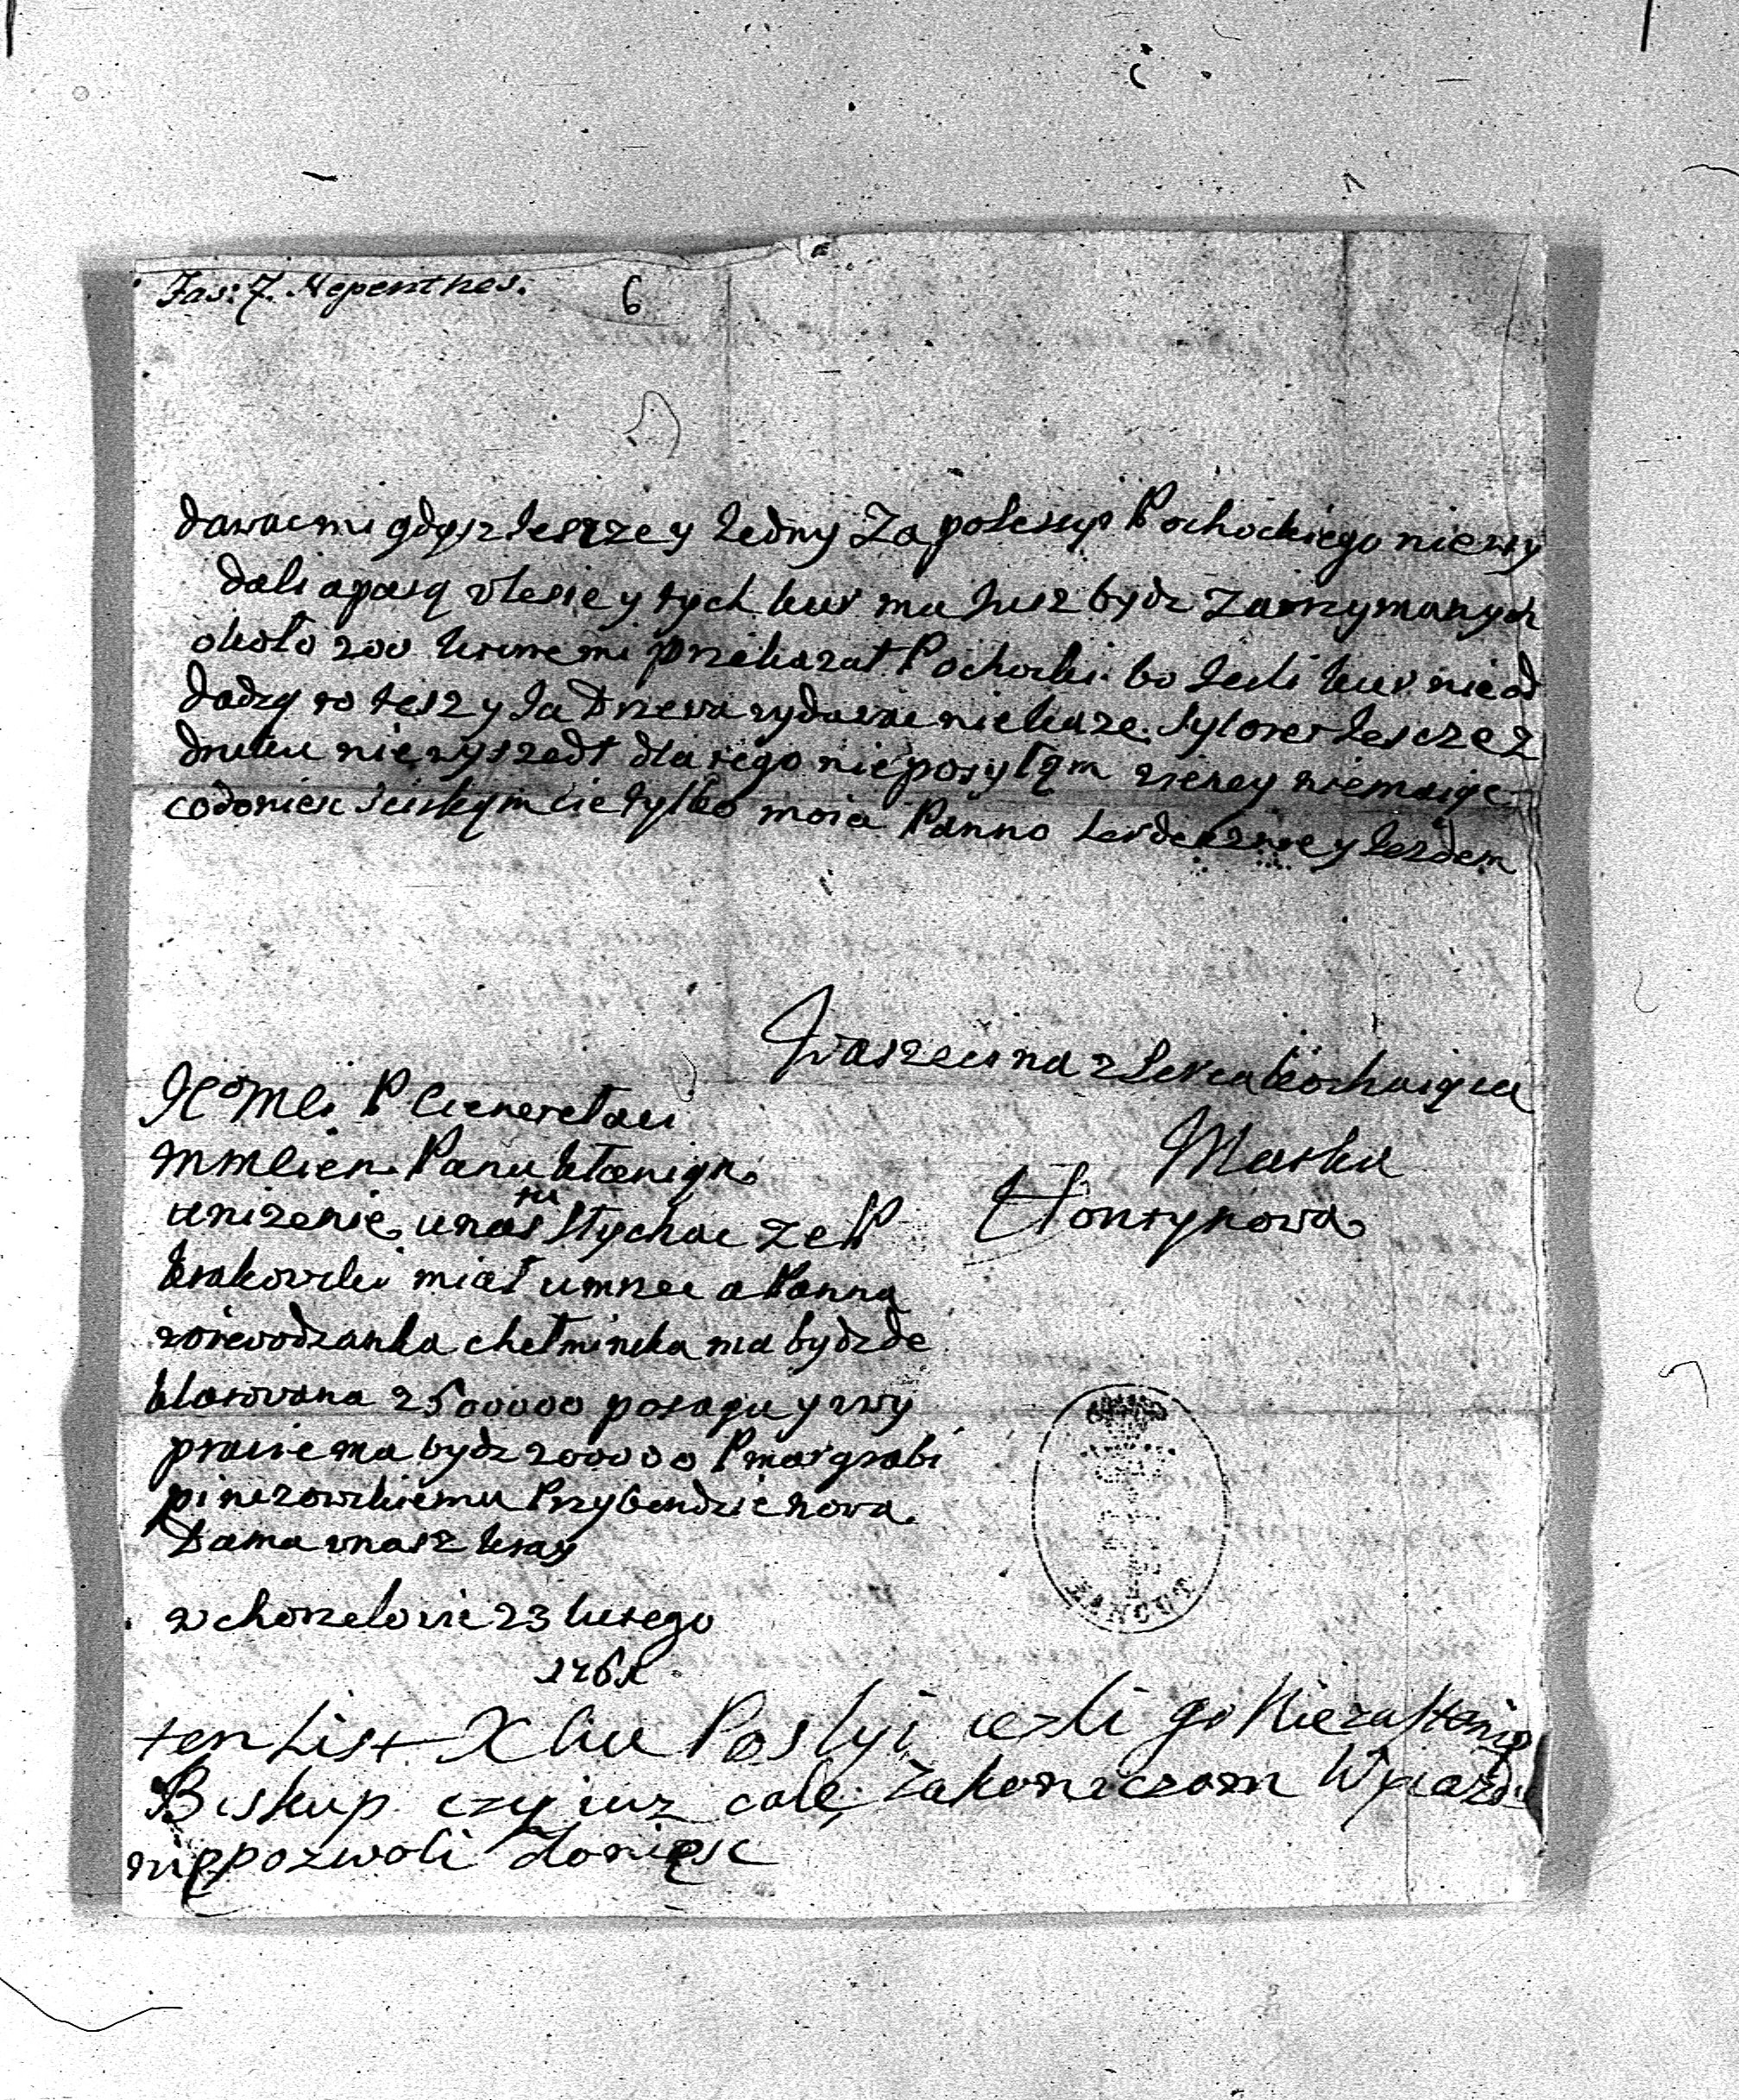 Fas: 7. Nepenthes. 6
dawac mi gdysz jeszcze y jedny Za polessyo Pochockiego nie wy
dali apasą vlesie y tych kur ma jusz bydz Zatrzymanych
około 200 przekazał Pochocki bo jesli kur nie od
dadzą to tesz y ja Drzewa wydawac nie kaze. jeszcze z
druku nie wyszedł dla tego nie posyłam wiency nie maiąc
co donieść sciskym cie tylko moia Panno serdecznie y jezdem
Waszeci na z serca kochaiąca
Matka
Morsztynowa
P Generałowi
Panu kłaniąm
unizenie, unas tu słychac ze P
krakowski miał umrzec a Panna
woiewodzanka chełminska ma bydz de
klarowana 2500000 posagu y wy
prawie ma bydz 200000 P margrabi
pinczowskiemu Przybendziehowa
Dama w nasz kray
w chorzelowie 23 lutego
1761
ten List X Poslyi iezli go Nie zastanie
Biskup czy iuz cale Zakoniczom Wyiazdu
nie pozwoli doniesc
ŁAŃCUT